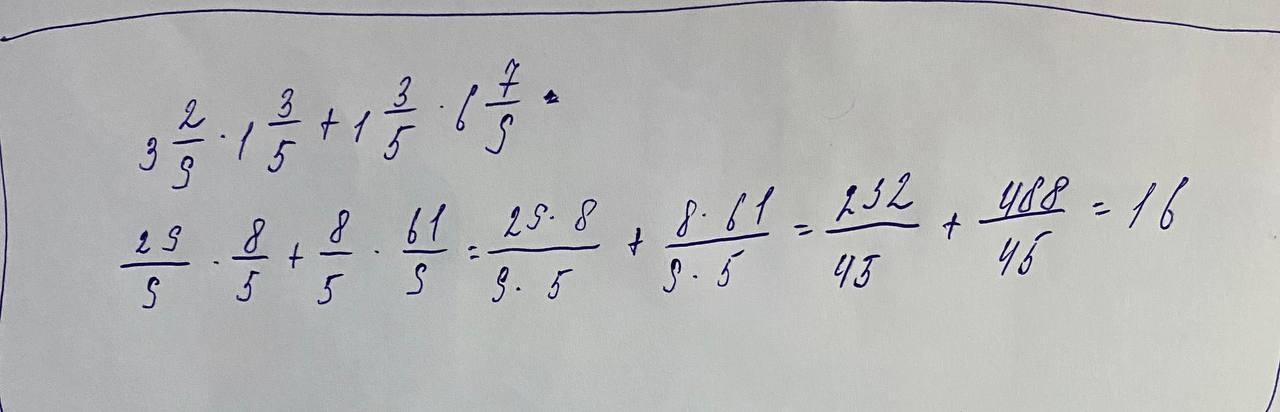 3 2/9 · 1 3/5 + 1 3/5 · 6 7/9 =
29/9 · 8/5 + 8/5 · 61/9 = 29·8/9·5 + 8·61/9·5 = 232/45 + 488/45 = 16